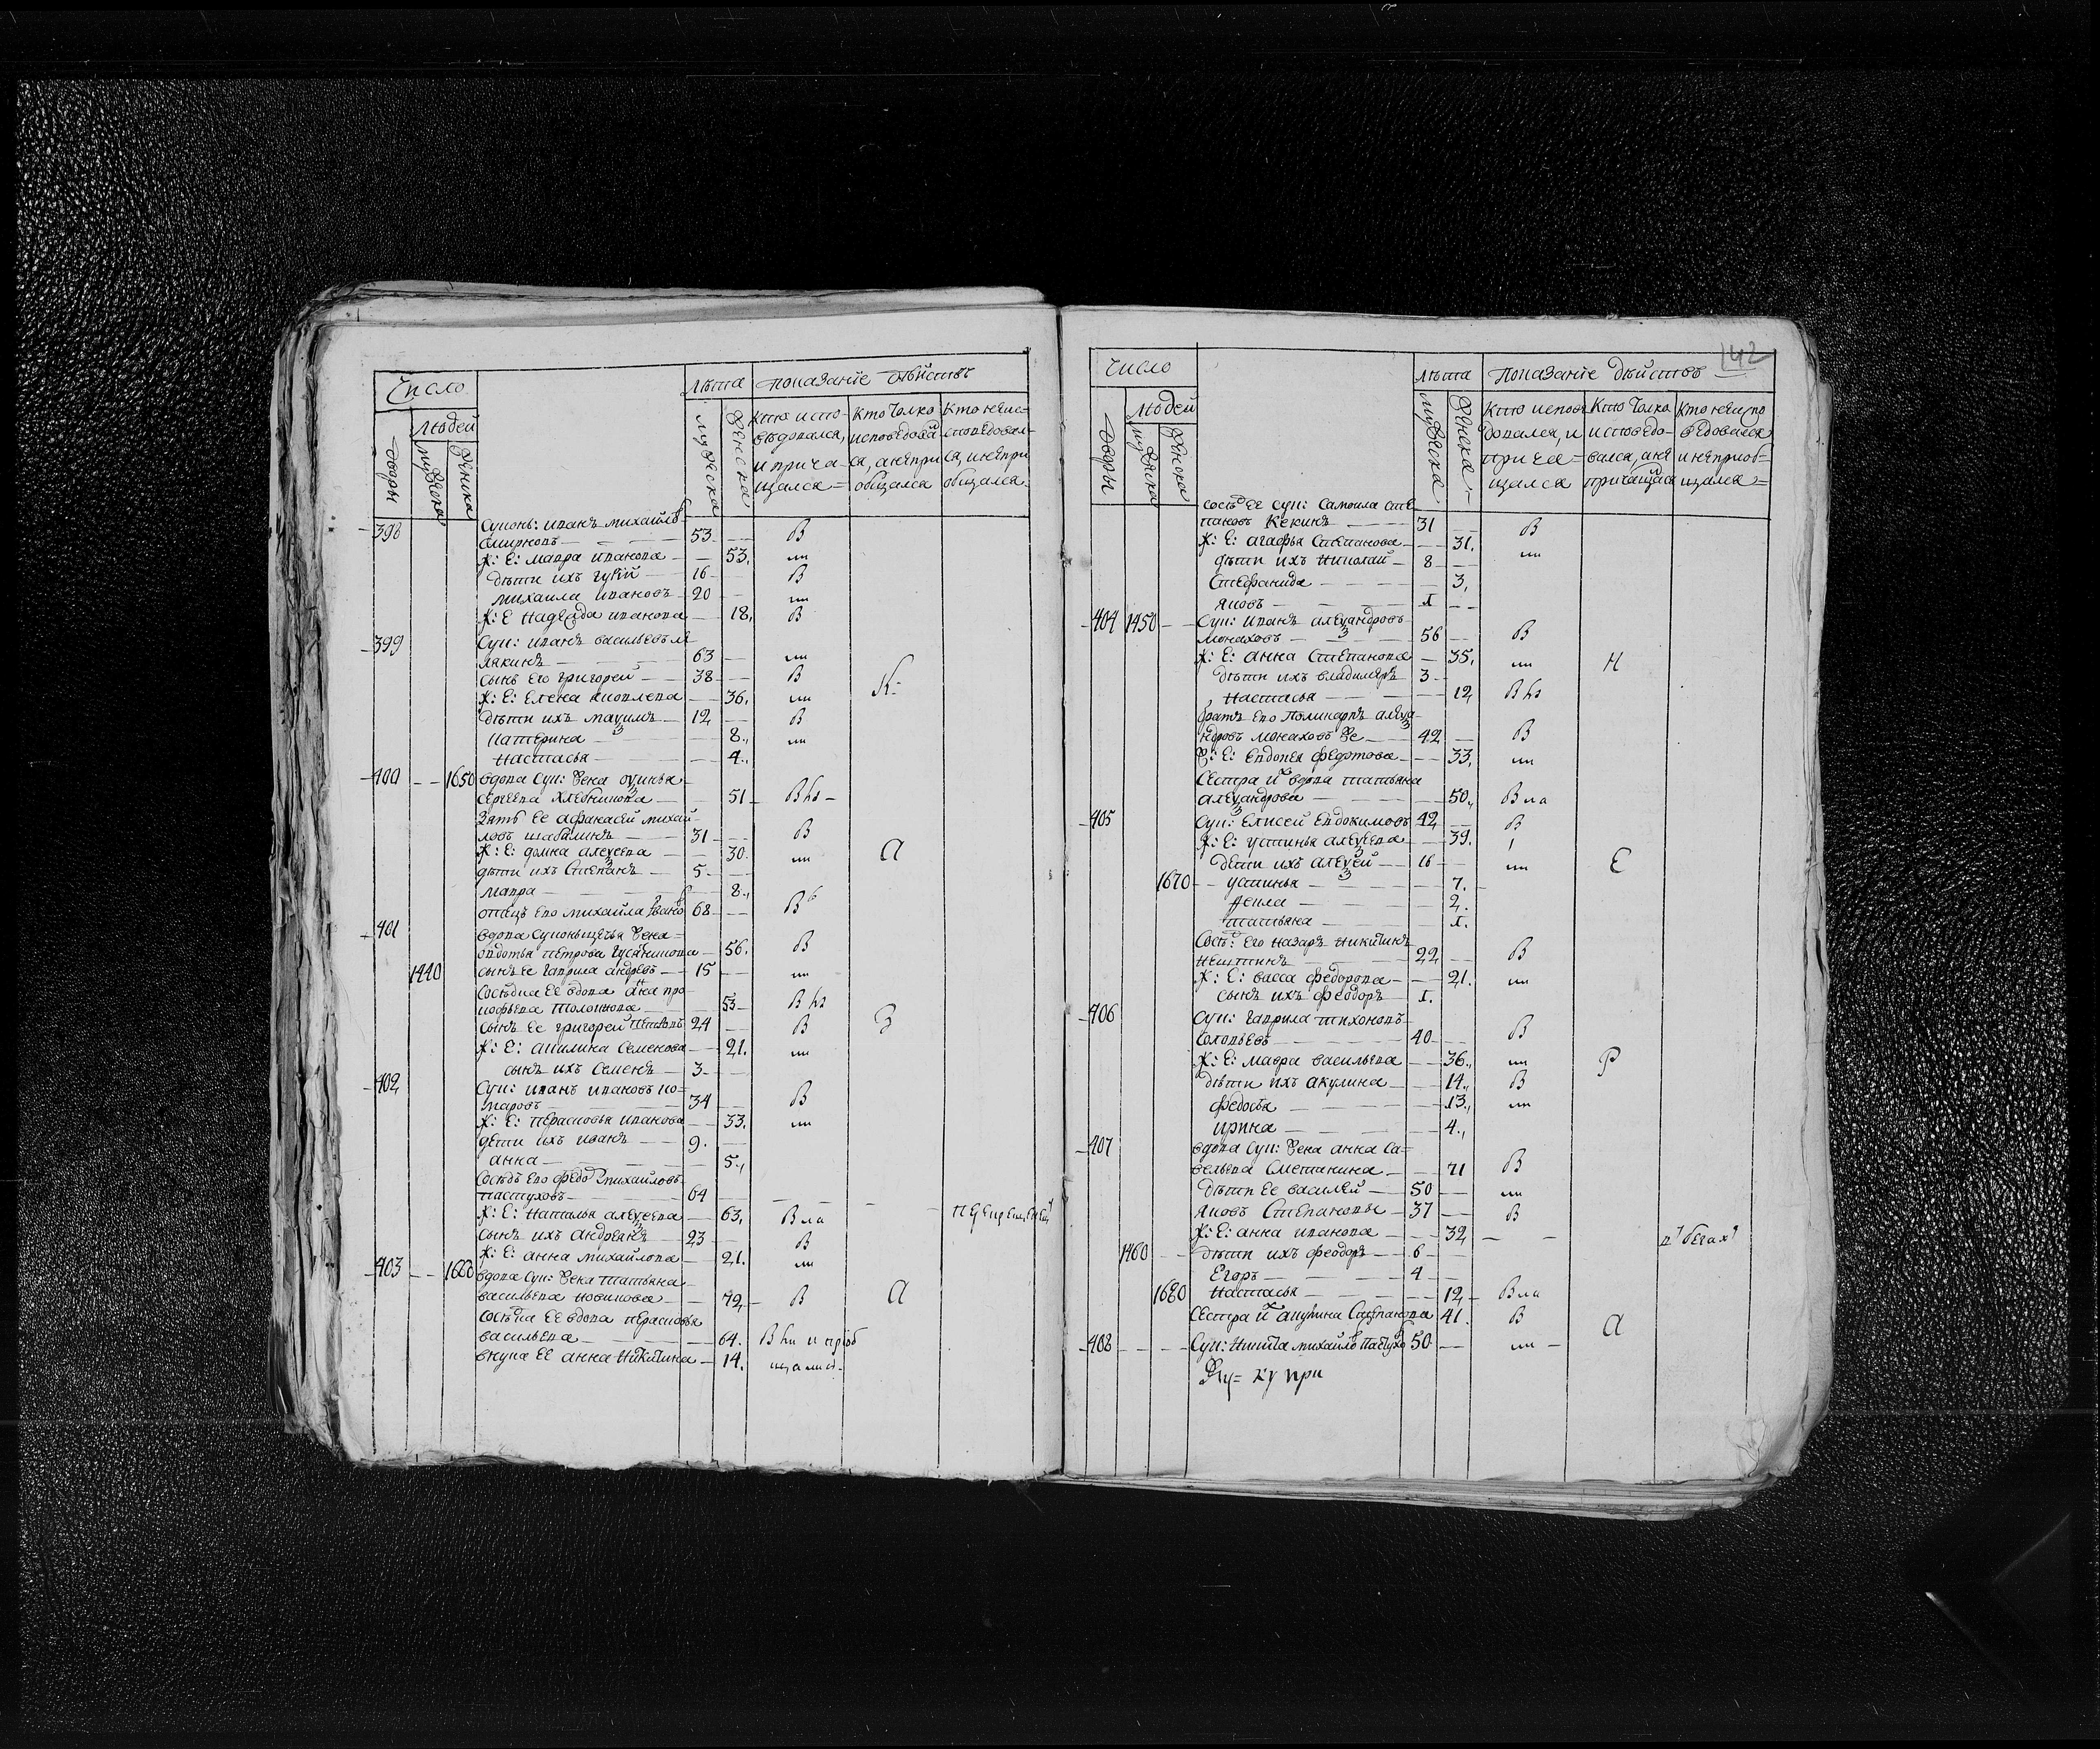 Число
Людей
Дворы
мужеска
женска
Лѣта
мужеска
женска
показанїе дѣйствъ
Кто испо-
вѣдовался,
и прича-
щался=
Кто толко
исповѣдовай
ся, а не при
общался
Кто не ис=
споведовал-
ся, и не при
общался.
398 Супонь: иванъ михайло
смирновъ 53 В
ж: Е: мавра иванова 53.
дѣти ихъ 16 В
михаила ивановъ 20
ж: Е надежда иванова 18. В
399 Суп: иванъ васильевъ
63
сынъ его григорей 38 В
ж: Е: Елена 36.
К:
дѣти ихъ маѯимъ 12 В
катерина 8.
настасья 4.
400 1650 вдова Суп: жена
сергеева хлебникова 51
зять ее афанасей михай-
ловъ шабалинъ 31 В
ж: Е: домна алеѯеева 30.
а
дѣти ихъ Степанъ 5.
мавра 8.
отецъ его михайла 68
401 вдова жена
овдотья петрова 56. В
1440 сынъ ее гаврила андреевъ 15
сосѣдка ее вдова анна про
кофьева 53
сынъ ее григорей 24 В
З
ж: Е: акилина семенова 21.
сынъ ихъ семенъ 3
402 Суп: иванъ ивановъ ко=
маровъ 34 В
ж: Е: перасковья иванова 33.
дети ихъ иванъ 9.
анна 5.
Сосѣдъ его федо михайловъ
пастуховъ 64
ж: Е: наталья алеѯеева 63.
сынъ ихъ андреянъ 23 В
ж: Е: анна михайлова 21.
403 1660 вдова Суп: жена татьяна
васильева новикова 72 В
а
сосѣдка ее вдова перасковья
васильева 64.
внука ее анна никитина 14.
142
Число
Людей
Дворы
мужеска
женска
Лѣта
мужеска
женска
показанїе дѣйствъ
Кто испов
довался, и
прича=
щался
Кто толко
исповедо-
вался, а не
причащайся
Кто не испо
ведовался
и не приоб=
щался=
сосѣд ее суп: Самоила сте
пановъ Кекинъ 31 В
ж: Е: агафья Степанова 31.
дѣти ихъ николай 8
Стефанида 3.
яковъ 1
404 1450 Суп: иванъ алеѯандровъ
монаховъ 56 В
ж: Е: анна Степанова 35.
Н
дѣти ихъ владимеръ 3
настасья 12
братъ его Поликарпъ алеѯа-
ндровъ монаховъ же 42 В
ж: Е: Евдокея федотова 33.
Сестра и вдова татьяна
алеѯандрова 50.
405 Суп: Елисей Евдокимовъ 42 В
ж: Е: устинья алеѯеева 39.
дети ихъ алеѯей 16
Е
1670 устинья 7.
2.
татьяна 1.
Сосѣ: его назаръ никитинъ
22 В
ж: Е: васса федорова 21.
сынъ ихъ феодоръ 1.
406 Суп: гаврила тихоновъ
соловьевъ 40 В
ж: Е: мавра васильева 36.
Р
дѣти ихъ акулина 14. В
федосья 13.
ирина 4.
407 вдова Суп: жена анна са=
вельева Сметанина 71 В
дѣти ее василей 50
яковъ Степановы 37 В
ж: Е: анна иванова 32
в бегах
1460 дѣти ихъ феодоръ 6
Егоръ 4
1680 настасья 12
Сестра и акулина Степанова 41. В
а
408 Суп: никита михайло пастухо 50